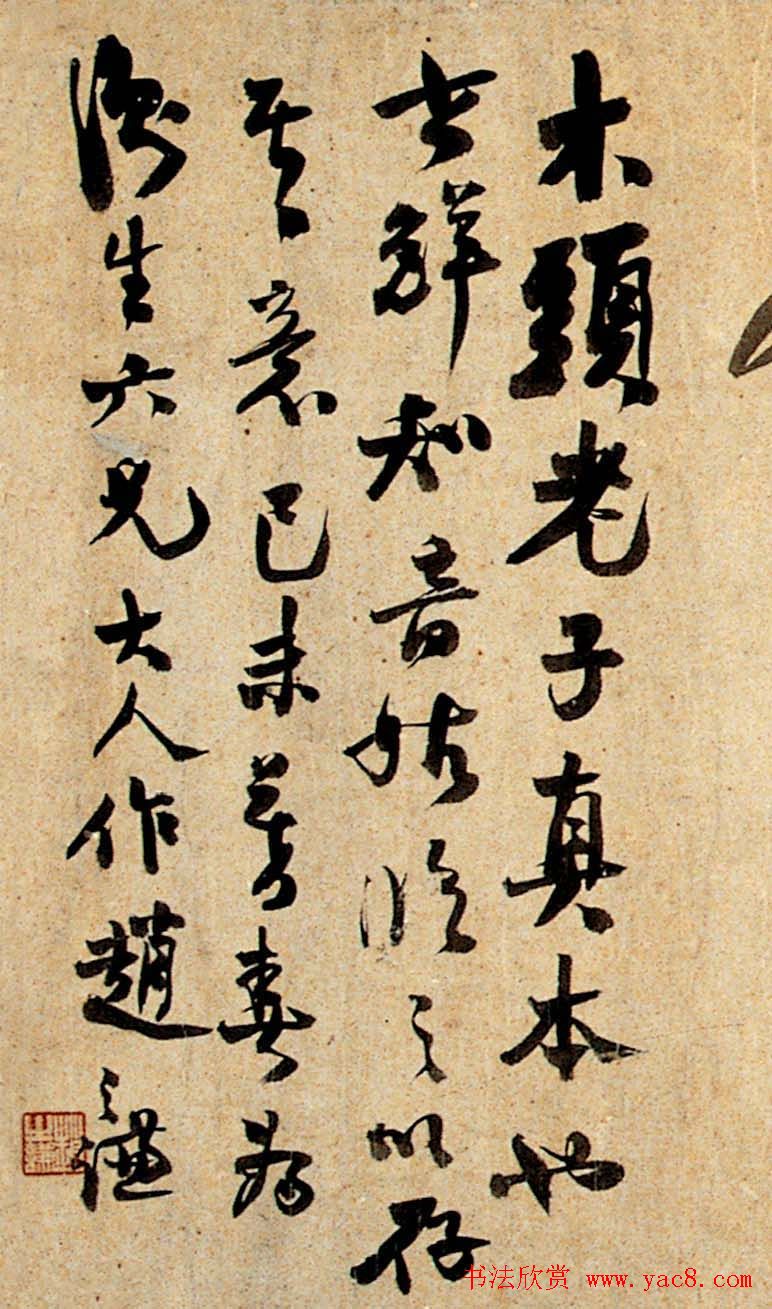 木頭老子真本也
世鮮知音姑臨之以存
其意己未暮春為
生六兄大人作趙之謙
书法欣赏 www.yac8.com